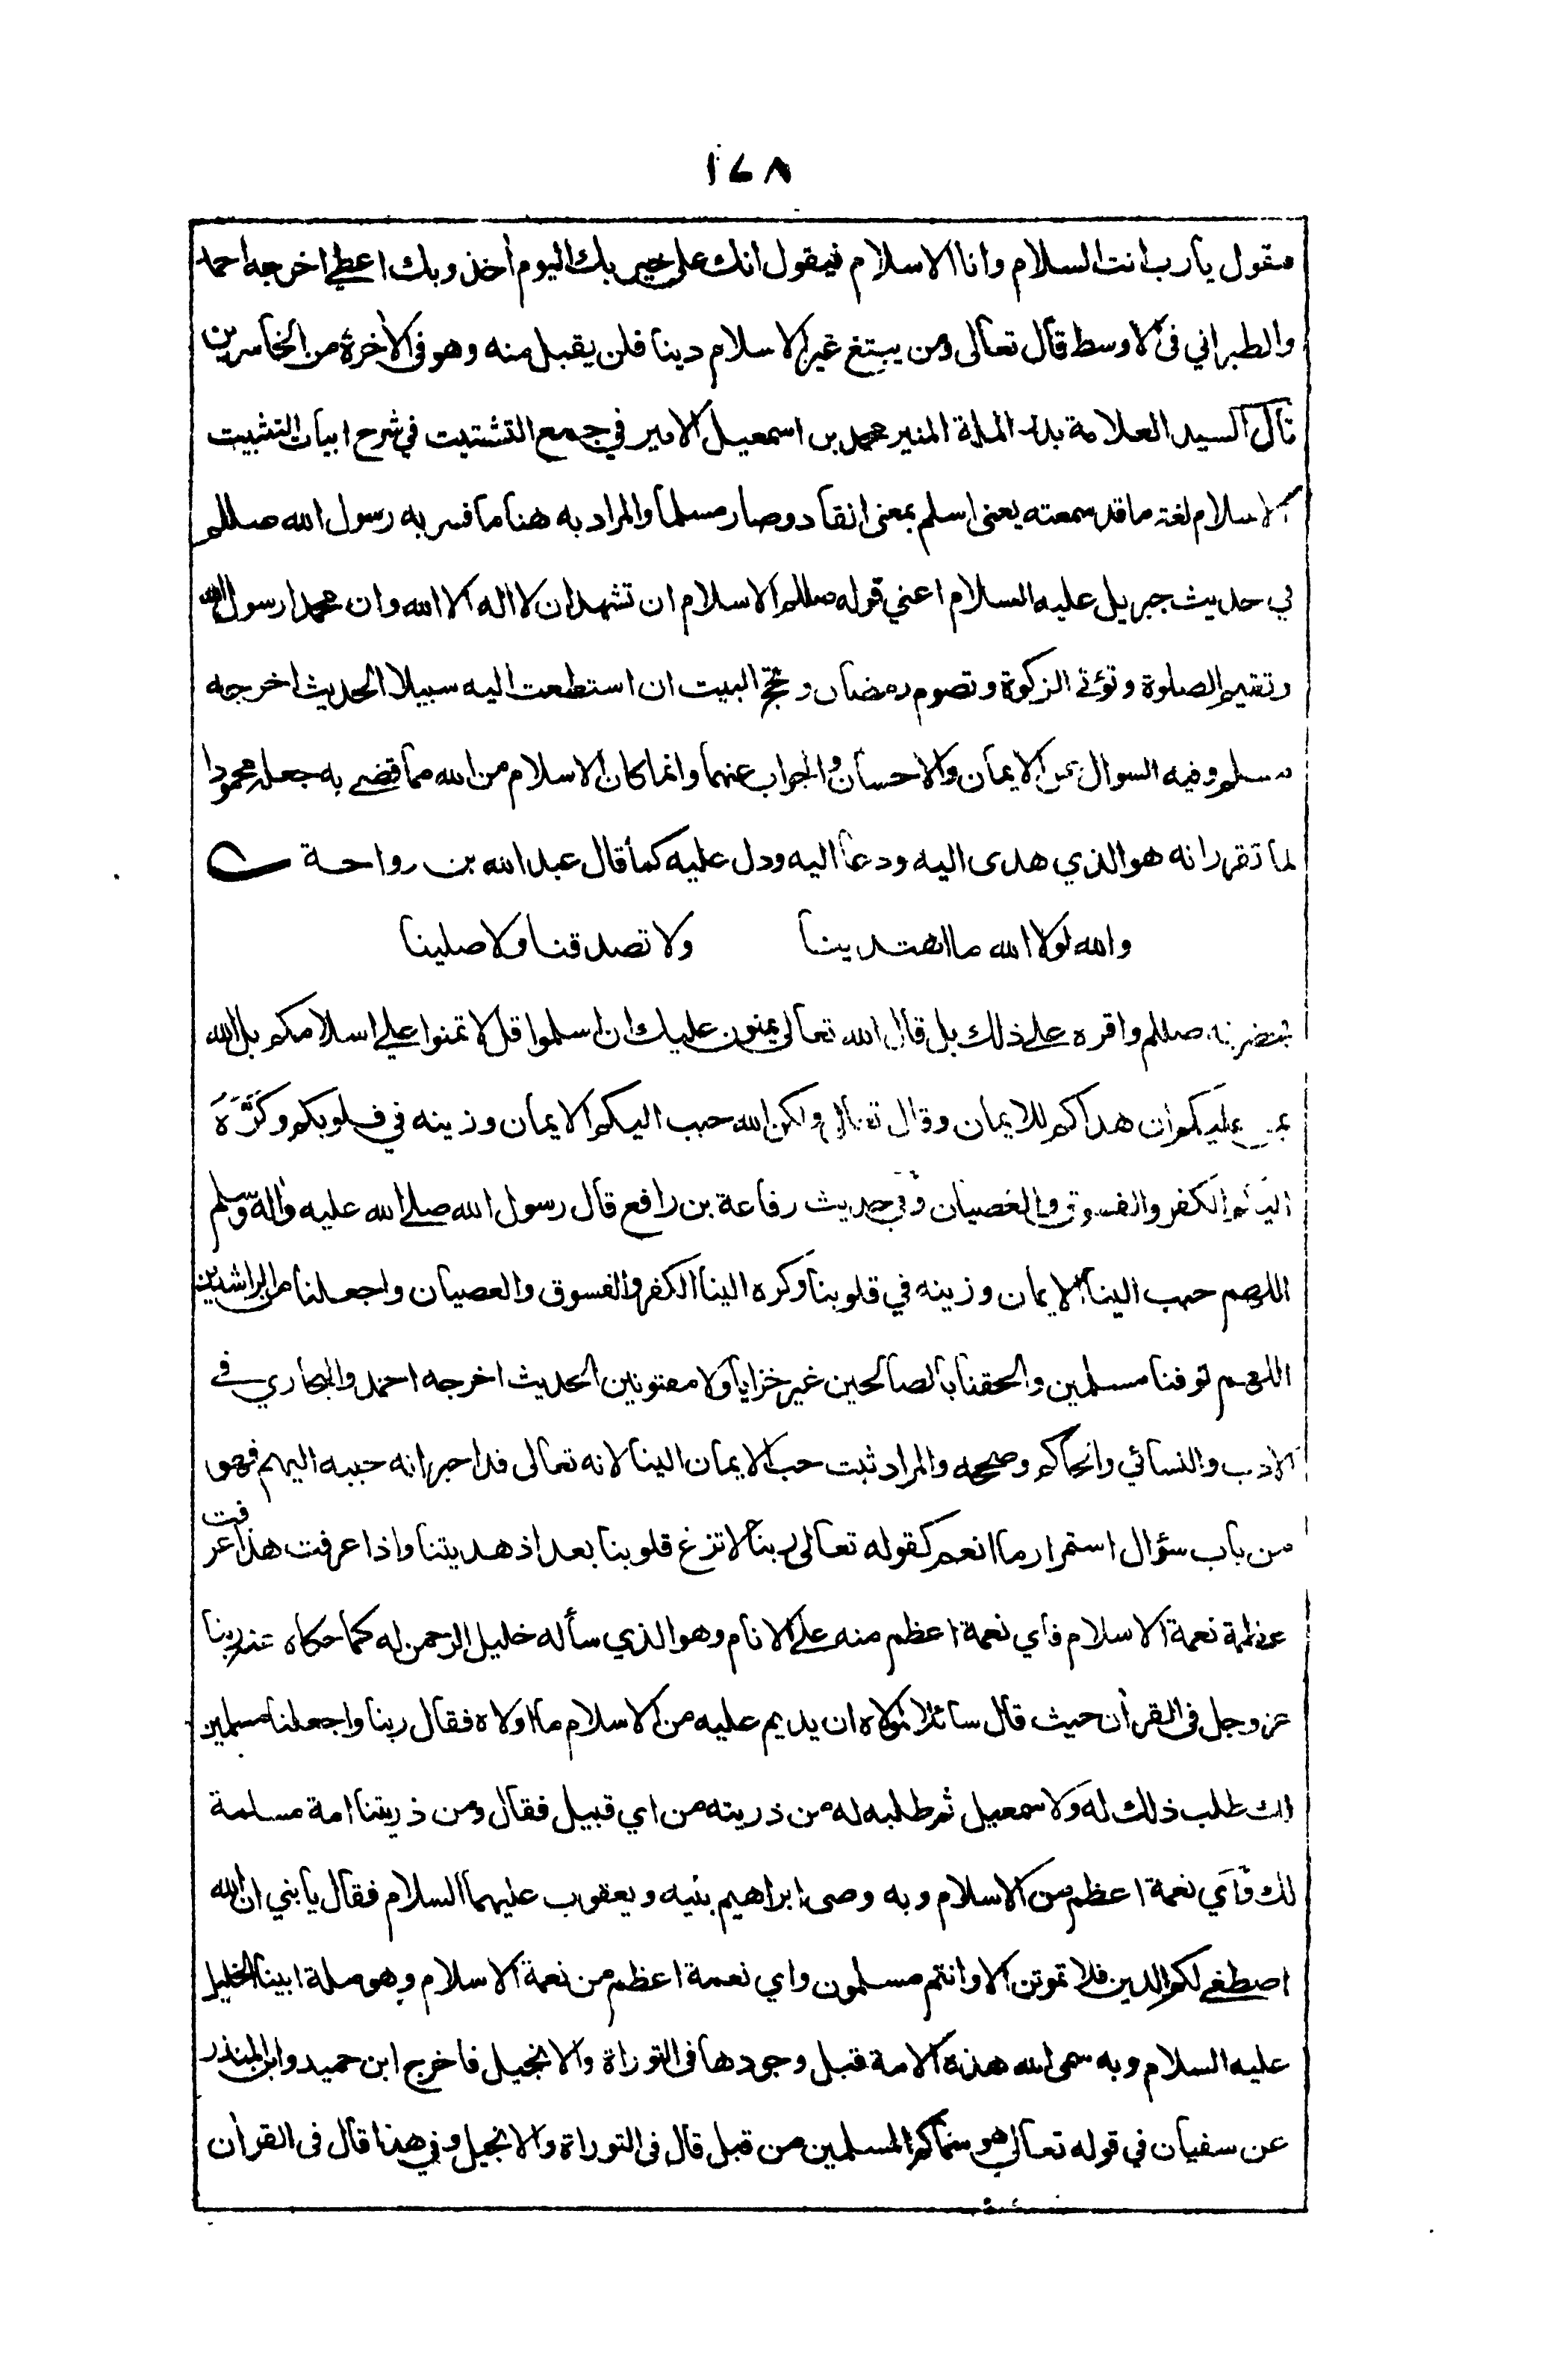 ١٤٨
فيقول يارب انت السلام وانا الاسلام فيقول انك على خير بك اليوم أخذ وبك اعطي اخرجه احمد
والطبراني فى الاوسط قال تعالى ومن يبتغ غير الاسلام دينا فلن يقبل منه وهو فى الأخرة من الخاسرين
قال السيد العلامة بدر الملة المنير محمد بن اسمعيل الامير في جمع التشتيت في شرح ابيات التثبيت
الاسلام لغة ما قد سمعته يعنى اسلم بمعنى انقاد وصار مسلما والمراد به هنا ما فسر به رسول الله صللم
في حديث جبريل عليه السلام اعني قوله صللم الاسلام ان تشهد ان لا اله الا الله وان محمدا رسول الله
وتقيم الصلوة وتؤتي الزكوة وتصوم رمضان وتحج البيت ان استطعت اليه سبيلا الحديث اخرجه
مسلم وفيه السوال عن الايمان والاحسان والجواب عنهما وانما كان الاسلام من الله مما قضى به جعله محمودا
لما تقرر انه هو الذي هدى اليه ودعا اليه ودل عليه كما قال عبد الله بن رواحة
والله لولا الله ما اهتدينا ولا تصدقنا ولا صلينا
بحضرته صللم واقره على ذلك بل قال الله تعالى يمنون عليك ان اسلموا قل لا تمنوا علي اسلامكم بل الله
يمن عليكم ان هداكم للايمان وقال تعالى ولكن الله حبب اليكم الايمان وزينه في قلوبكم وكَرَّهَ
اليكم الكفر والفسوق والعصيان وفي حديث رفاعة بن رافع قال رسول الله صلى الله عليه واله وسلم
اللهم حبب الينا الايمان وزينه في قلوبنا وكره الينا الكفر والفسوق والعصيان واجعلنا من الراشدين
اللهم توفنا مسلمين والحقنا بالصالحين غير خزايا ولا مفتونين الحديث اخرجه احمد والبخاري في
الادب والنسائي والحاكم وصححه والمراد ثبت حب الايمان الينا لانه تعالى قد اخبر انه حببه اليهم فهو
من باب سؤال استمرار ما انعم كقوله تعالى ربنا لا تزغ قلوبنا بعد اذ هديتنا واذا عرفت هذا عرفت
عظمة نعمة الاسلام فاي نعمة اعظم منه على الانام وهو الذي سأله خليل الرحمن له كما حكاه عنه ربنا
عز وجل فى القرأن حيث قال سائلا مولاه ان يديم عليه من الاسلام ما اولاه فقال ربنا واجعلنا مسلمين
لك طلب ذلك له ولاسمعيل ثم طلبه له من ذريته من اي قبيل فقال ومن ذريتنا امة مسلمة
لك فأي نعمة اعظم من الاسلام وبه وصى ابراهيم بنيه ويعقوب عليهما السلام فقال يا بني ان الله
اصطفى لكم الدين فلا تموتن الا وانتم مسلمون واي نعمة اعظم من نعمة الاسلام وهو ملة ابينا الخليل
عليه السلام وبه سمى الله هذه الامة قبل وجودها فى التوراة والانجيل فاخرج ابن حميد وابن المنذر
عن سفيان في قوله تعالى هو سماكم المسلمين من قبل قال فى التوراة والانجيل وفي هذا قال فى القرأن